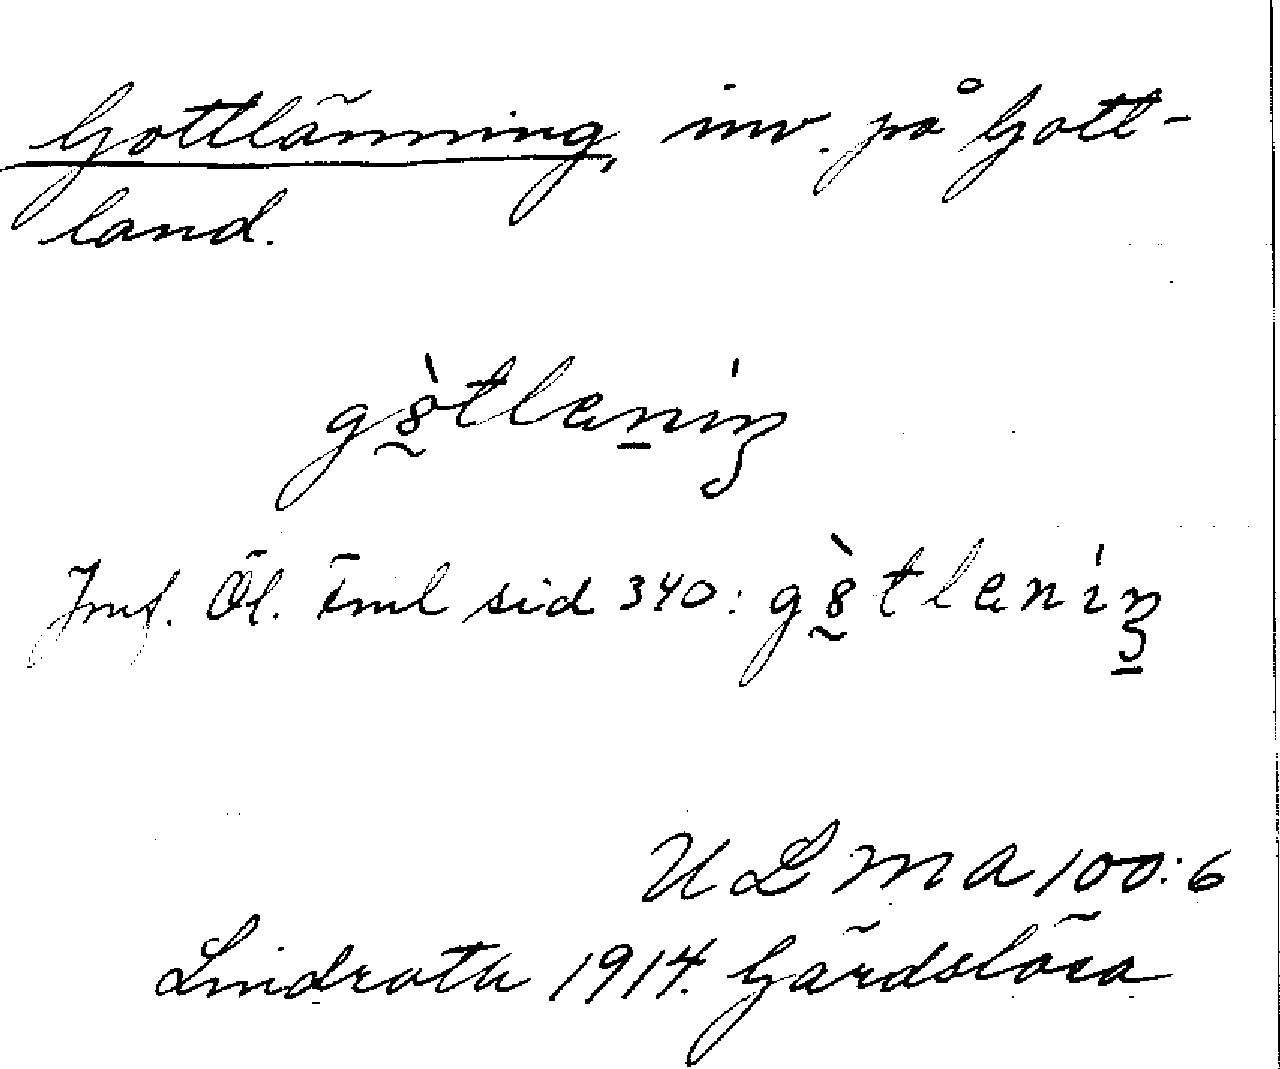 Gottlänning, inv. på Gott-
land.
gȍ̰tleṉiŋ
Jmf. Öl. Fml sid 340: 
ULMA 100:6
Lindroth 1914. Gärdslösa